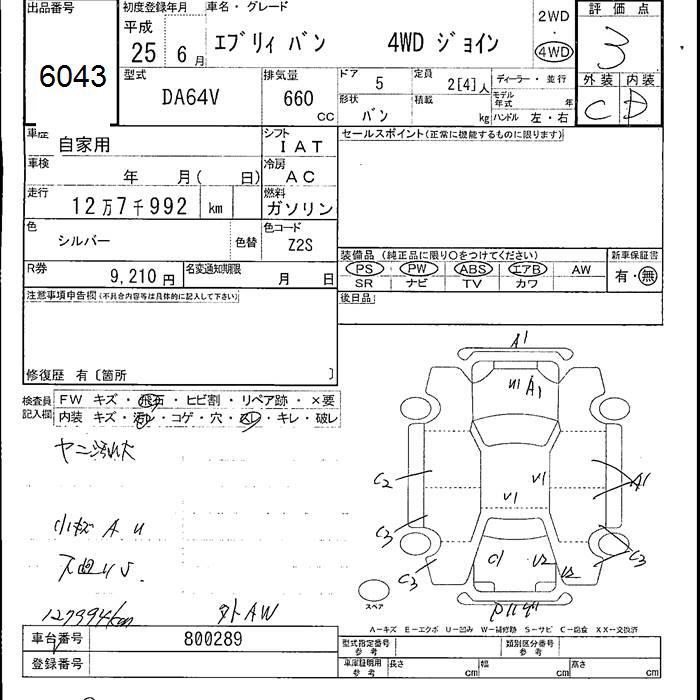 出品番号 初度登録年月 車名・グレード 2WD 評価点
平成 25 6月 エブリィ バン 4WD ジョイン 4WD 3
6043 型式 DA64V 排気量 660 CC ドア 5 定員 2[4]人 ディーラー・並行 外装 内装
形状 バン 積載 kg モデル年式 年 ハンドル 左・右 C D
車歴 自家用 シフト IAT セールスポイント(正常に機能するものに限ります)
車検 年 月( 日) 冷房 AC
走行 12万7千992 km 燃料 ガソリン
色 シルバー 色替 色コード Z2S
装備品 (純正品に限り○をつけてください) 新車保証書
R券 9,210円 名変通知期限 月 日 PS PW ABS エアB AW 有・無
SR ナビ TV カワ
注意事項申告欄(不具合内容等は具体的に記入して下さい) 後日品
修復歴 有〔箇所 〕
検査員記入欄 FW キズ・飛石・ヒビ割・リペア跡・×要
内装 キズ・汚れ・コゲ・穴・スレ・キレ・破レ
ヤニ汚れ大
小キズ A U
下廻りS.
127994km
外AW
A1
U1 A1
C2 U1 A1
U1
C3 C3
C3 C1 U2 U2
スペア
A-キズ E-エクボ U-凹み W-補修跡 S-サビ C-腐食 XX-交換済
車台番号 800289 型式指定番号 参考 類別区分番号 参考
登録番号 車庫証明用 参考 長さ cm 幅 cm 高さ cm